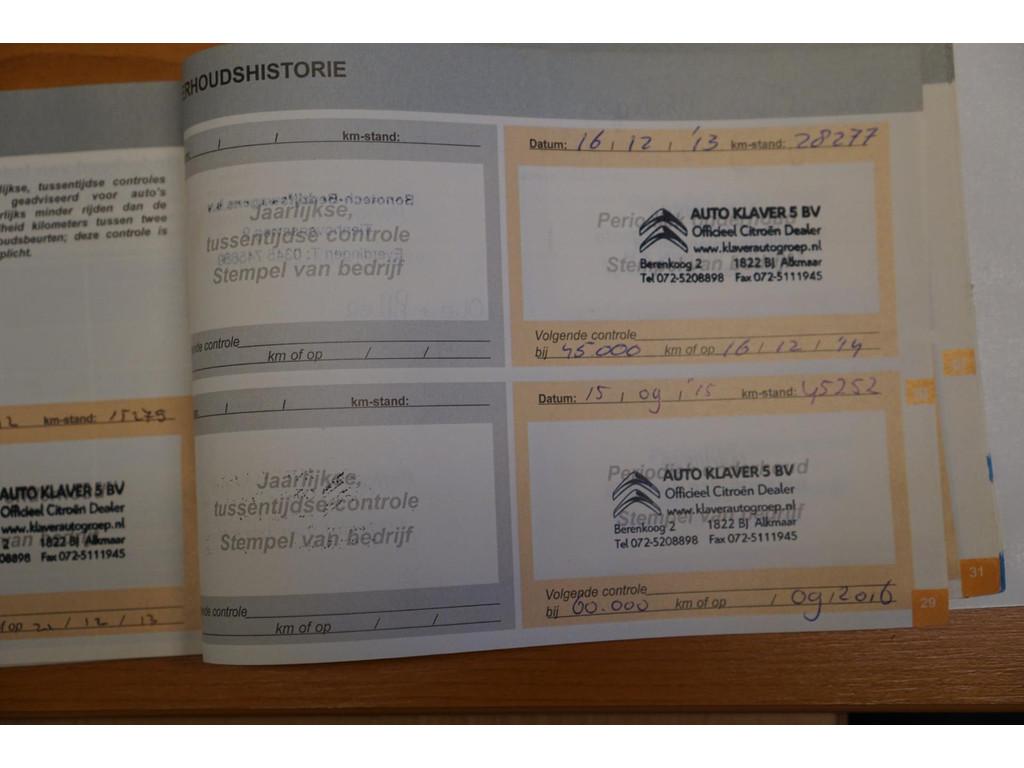 ERHOUDSHISTORIE
lijkse, tussentijdse controles
geadviseerd voor auto's
rlijks minder rijden dan de
heid kilometers tussen twee
oudsbeurten; deze controle is
plicht.
2 km-stand: 15279
AUTO KLAVER 5 BV
Officieel Citroën Dealer
www.klaverautogroep.nl
2 1822 BJ Alkmaar
08898 Fax 072-5111945
of op 21 / 12 / 13
/ / km-stand:
Jaarlijkse,
tussentijdse controle
Stempel van bedrijf
de controle
km of op / /
/ / km-stand:
Jaarlijkse,
tussentijdse controle
Stempel van bedrijf
de controle
km of op / /
Datum: 16 / 12 / '13 km-stand: 28277
AUTO KLAVER 5 BV
Officieel Citroën Dealer
www.klaverautogroep.nl
Berenkoog 2 1822 BJ Alkmaar
Tel 072-5208898 Fax 072-5111945
Volgende controle
bij 45000 km of op 16 / 12 / '14
Datum: 15 / 09 / '15 km-stand: 45252
AUTO KLAVER 5 BV
Officieel Citroën Dealer
www.klaverautogroep.nl
Berenkoog 2 1822 BJ Alkmaar
Tel 072-5208898 Fax 072-5111945
Volgende controle
bij 60.000 km of op / 09 / 2016
29
31